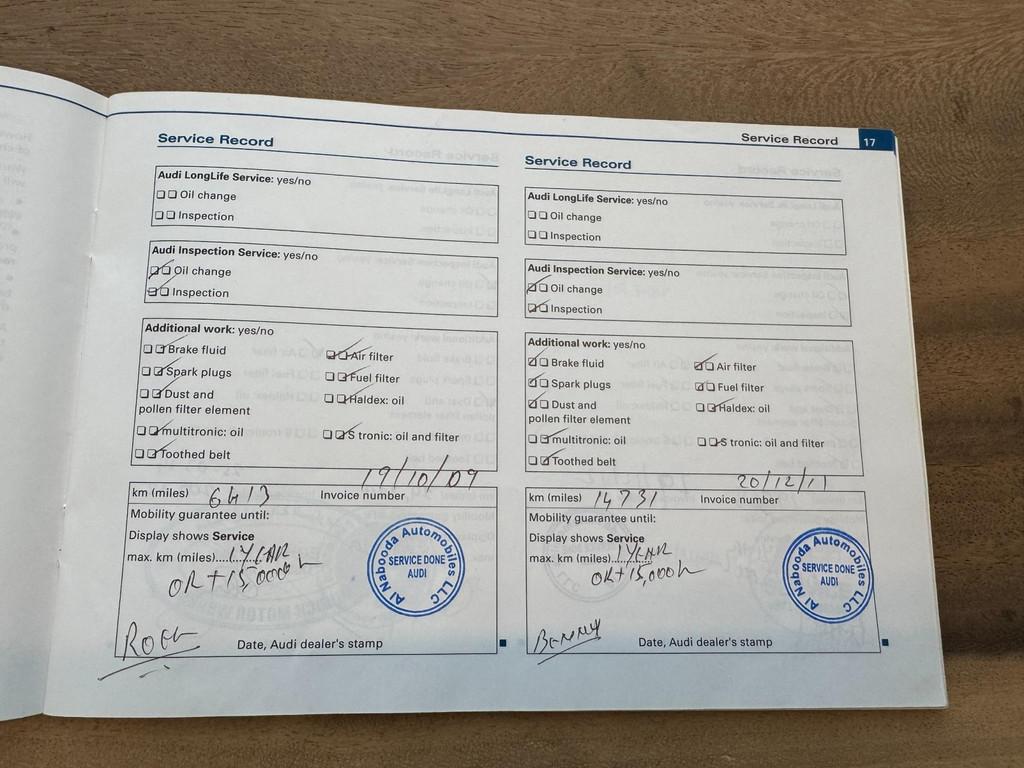 Service Record
Audi LongLife Service: yes/no
Oil change
Inspection
Audi Inspection Service: yes/no
Oil change
Inspection
Additional work: yes/no
Brake fluid
Air filter
Spark plugs
Fuel filter
Dust and
pollen filter element
Haldex: oil
multitronic: oil
S tronic: oil and filter
Toothed belt
19/10/09
km (miles) 6413 Invoice number
Mobility guarantee until:
Display shows Service
max. km (miles).....1 YEAR
OR + 15,000
Al Nabooda Automobiles LLC
SERVICE DONE
AUDI
Date, Audi dealer's stamp
Service Record 17
Service Record
Audi LongLife Service: yes/no
Oil change
Inspection
Audi Inspection Service: yes/no
Oil change
Inspection
Additional work: yes/no
Brake fluid
Air filter
Spark plugs
Fuel filter
Dust and
pollen filter element
Haldex: oil
multitronic: oil
S tronic: oil and filter
Toothed belt
20/12/11
km (miles) 14731 Invoice number
Mobility guarantee until:
Display shows Service
max. km (miles)....1 YEAR
OR + 15,000
Al Nabooda Automobiles LLC
SERVICE DONE
AUDI
Benny
Date, Audi dealer's stamp